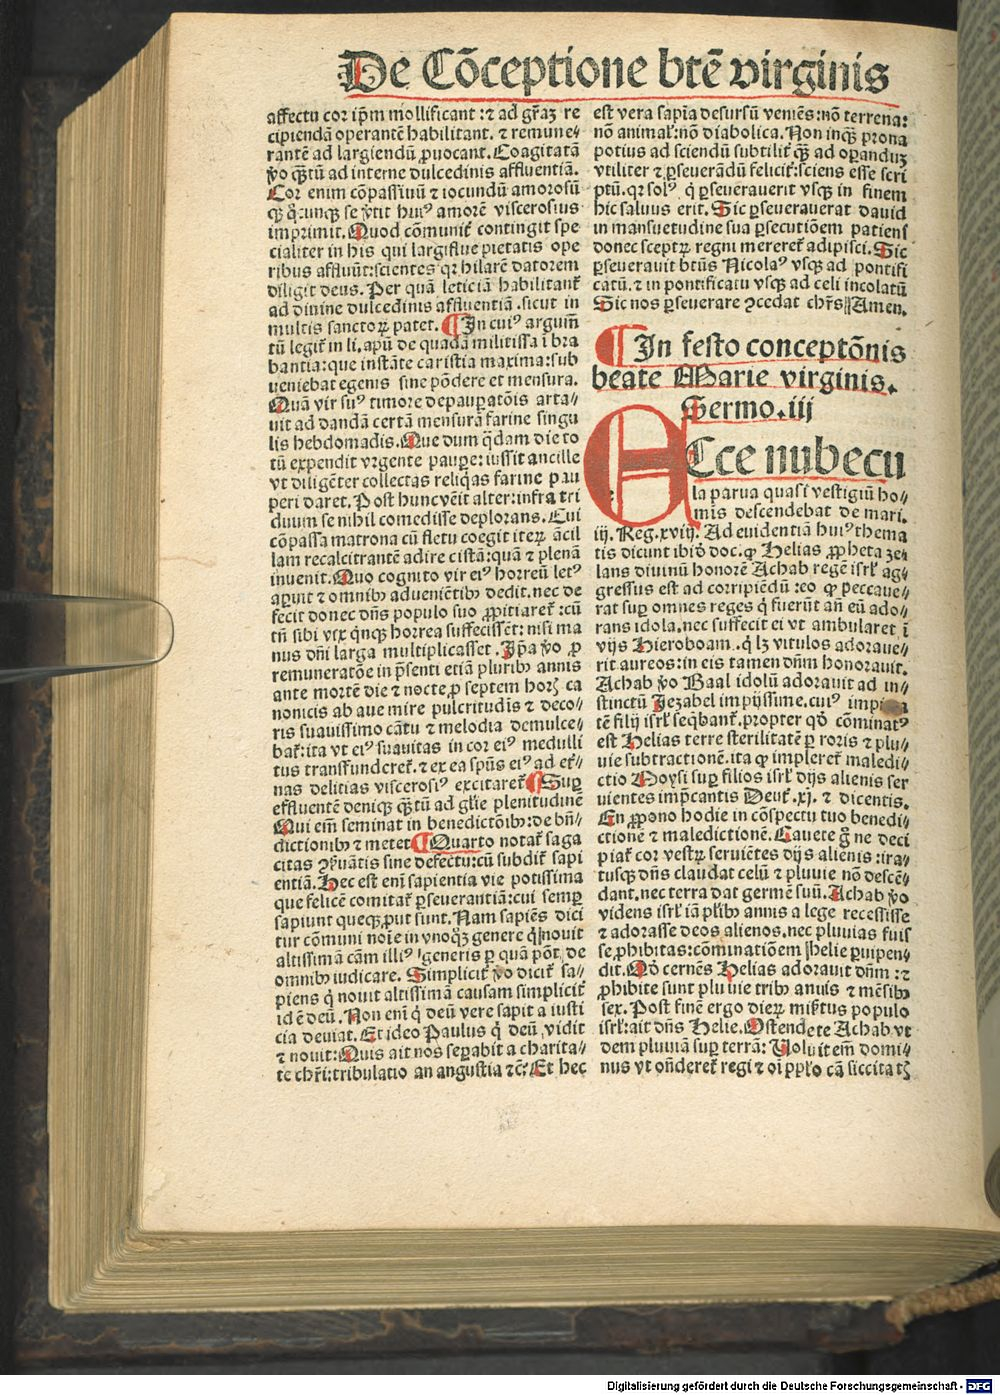 De Cōceptione btē virginis
affectu cor ip̄m mollificant: ⁊ ad gr̄aȝ re
cipiendā operantē habilitant. ⁊ remune-
rantē ad largiendū ꝓuocant. Coagitatā
ꝟo qꝫtū ad interne dulcedinis affluentiā.
Cor enim cōpassiuū ⁊ iocundū amorosū
imprimit. Quod cōmunit̄ contingit spe
cialiter in his qui largiflue pietatis ope
ribus affluūt: scientes qꝛ hilarē datorem
diligit deus. Per quā leticiā habilitant̄
ad diuine dulcedinis affluentiā. sicut in
multis sanctoꝝ patet. ¶ In cuiꝰ argum̄
tū legit̄ in li. apū de quadā militissa ī bra
bantia: que instāte caristia maxima: sub
ueniebat egenis sine pōdere et mensura.
Quā vir suꝰ timore depauꝑatōis arta-
uit ad dandā certā mensurā farine singu
lis hebdomadis. Que dum q̄dam die to
tū expendit vrgente pauꝑe: iussit ancille
vt diligēter collectas reliq̄as farine pau
peri daret. Post hunc vēit alter: infra tri
duum se nihil comedisse deplorans. Cui
cōpassa matrona cū fletu coegit iteꝝ ācil
lam recalcitrantē adire cistā: quā ⁊ plenā
inuenit. Quo cognito vir eiꝰ horreū letꝰ
aꝑuit ⁊ omnibꝰ aduenictibꝰ dedit. nec de
fecit donec dn̄s populo suo ꝓpitiaret̄: cū
tn̄ sibi vix qn̄qꝫ horrea suffecissēt: nisi ma
nus dn̄i larga multiplicasset. Ip̄a ꝟo ꝓ
remuneratōe in p̄senti etiā pluribꝰ annis
ante mortē die ⁊ nocte, ꝓ septem horꝭ ca
nonicis ab aue mire pulcritudīs ⁊ deco-
ris suauissimo cātu ⁊ melodia demulce-
bat̄: ita vt eiꝰ suauitas in cor eiꝰ medulli
tus transfunderet̄. ⁊ ex ea spūs eiꝰ ad et̄-
nas delitias viscerosiꝰ excitaret̄ ¶ Suꝑ
effluentē deniqꝫ qꝫtū ad gl̄ie plenitudinē
Qui em̄ seminat in benedictōibꝰ: de bn̄-
dictionibꝰ ⁊ metet ¶ Quarto notat̄ saga
citas ꝯẜuātis sine defectu: cū subdit̄ sapi
entiā. Hec est eni sapientia vie potissima
que felicē comitat̄ ꝑseuerantiā: cui semꝑ
sapiunt queqꝫ ꝓut sunt. Nam sapiēs dici
tur cōmuni noīe in vnoqꝫ genere q̄ nouit
altissimā cām illiꝰ generis ꝑ quā pōt de
omnibꝰ iudicare. Simplicit̄ ꝟo dicit̄ sa-
piens q̄ nouit altissimā causam simplicit̄
id ē deū. Non eni q̄ deū vere sapit a iusti
cia deuiat. Et ideo Paulus q̄ deū vidit
⁊ nouit: Quis ait nos seꝑabit a charita-
te chr̄i: tribulatio an angustia ⁊c̄. Et hec
est vera sapīa desursū veniēs: nō terrena:
nō animat̄: nō diabolica. Non inqꝫ prona
potius ad sciendū subtilit̄ qꝫ ad oꝑanduȝ
vtiliter ⁊ ꝑseuerādū felicit̄: sciens esse scri
ptū. qꝛ solꝰ q̄ ꝑseuerauerit vsqꝫ in finem
hic saluus erit. Sic ꝑseuerauerat dauid
in mansuetudine sua ꝑsecutiōem patiens
donec sceptꝝ regni mereret̄ adipisci. Sic
ꝑseuerauit btūs Nicolaꝰ vsqꝫ ad pontifi
catū. ⁊ in pontificatu vsqꝫ ad celi incolatū
Sic nos ꝑseuerare ꝯcedat chr̄s Amen.
¶ In festo conceptōnis
beate Marie virginis.
Sermo. iij
ECce nubecu
la parua quasi vestigiū ho-
mīs descendebat de mari.
iij. Reg. xviij. Ad euidentiā huiꝰ thema
tis dicunt ibid̄ doc. ꝙ Helias ꝓpheta ze-
lans diuinū honorē Achab regē isrl̄ ag-
gressus est ad corripiēdū: eo ꝙ peccaue-
rat suꝑ omnes reges q̄ fuerūt an̄ eū ado-
rans idola. nec suffecit ei vt ambularet ī
vijs Hieroboam. q̄ lꝫ vitulos adoraue-
rit aureos: in eis tamen dn̄m honorauit.
Achab ꝟo Baal idolū adorauit ad in-
stinctū Jezabel impijssime. cuiꝰ
tē filij isrl̄ seq̄bant̄. propter qd̄ cōminatꝰ
est Helias terre sterilitatē ꝑ roris ⁊ plu-
uie subtractionē. ita ꝙ impleret̄ maledi-
ctio Moysi suꝑ filios isrl̄ dijs alienis ser
uientes imp̄cantis Deut̄. xj. ⁊ dicentis.
En ꝓpono hodie in cōspectu tuo benedi-
ctionē ⁊ maledictionē. Cauete g̊ ne deci
piat̄ cor vestꝝ seruiētes dijs alienis: ira-
tusqꝫ dn̄s claudat celū ⁊ pluuie nō descē-
dant. nec terra dat germē suū. Achab ꝟo
videns isrl̄ iā pl̄ibꝰ annis a lege recessisse
⁊ adorasse deos alienos. nec pluuias fuis
se ꝓhibitas: cōminatiōem helie ꝑuipen-
dit. Qd̄ cernēs Helias adorauit dn̄m: ⁊
ꝓhibite sunt pluuie tribꝰ annis ⁊ mēsibꝰ
sex. Post finē ergo dieꝝ mis̄tus populo
isrl̄: ait dn̄s Helie. Ostendete Achab vt
dem pluuiā suꝑ terrā: Uoluit em̄ domi-
nus vt on̄deret̄ regi ⁊ oī pplo cā siccitatꝭ
Digitalisierung gefördert durch die Deutsche Forschungsgemeinschaft - DFG